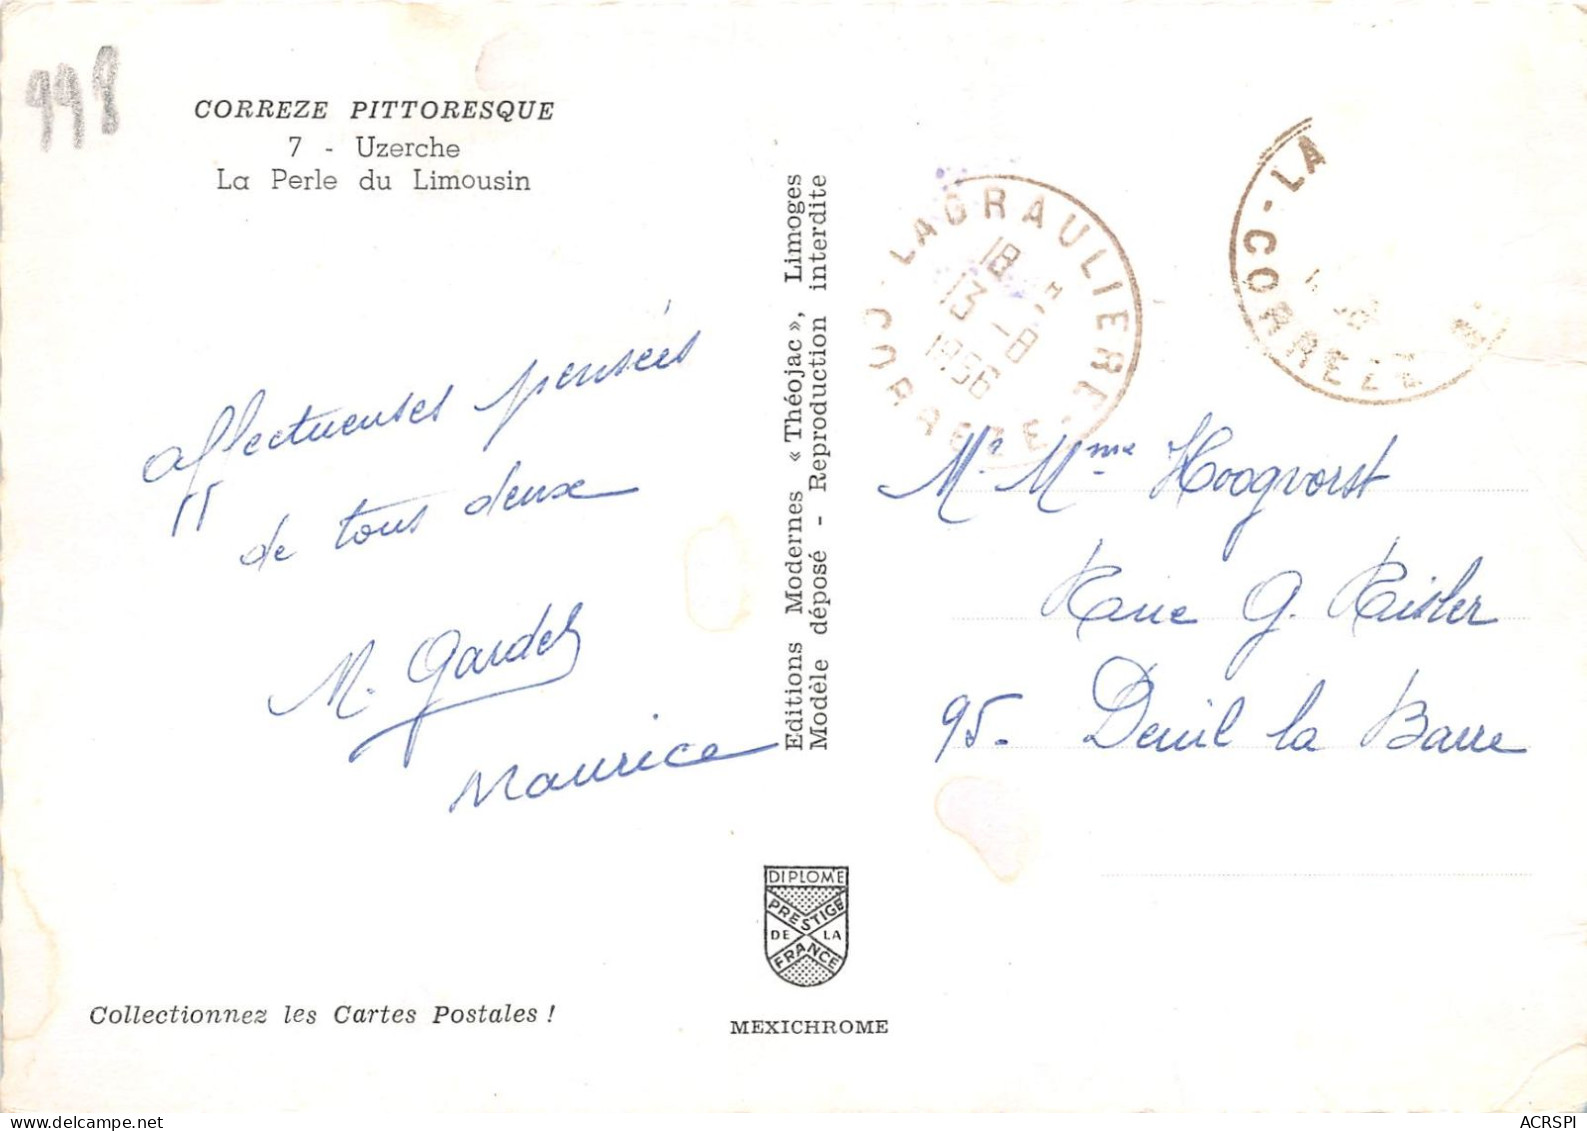 998
CORREZE PITTORESQUE
7 - Uzerche
La Perle du Limousin
affectueuses pensées
de tous deux
M. Gardel
Maurice
Collectionnez les Cartes Postales !
Editions Modernes « Théojac », Limoges
Modèle déposé - Reproduction interdite
DIPLOME
PRESTIGE
DE LA
FRANCE
MEXICHROME
LAGRAULIERE
18 H
13 -8
1956
CORREZE
LA
CORREZE
Mr Mme Hoogvorst
Rue G. Risler
95. Deuil la Barre
ACRSPI